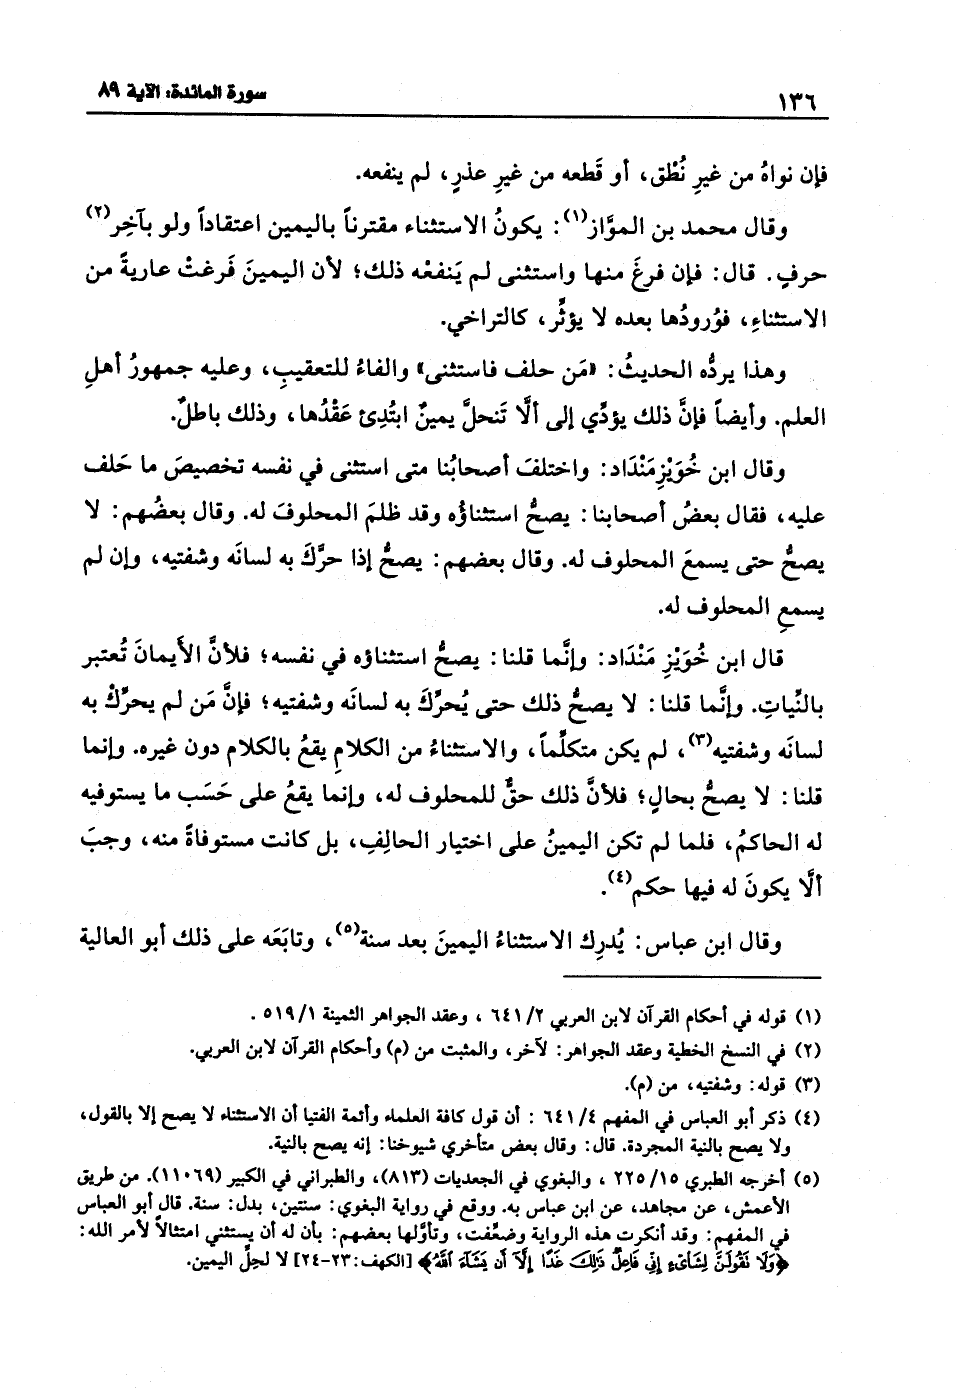 ١٣٦
سورة المائدة: الآية ٨٩
فإن نواهُ من غيرِ نُطْق، أو قَطعه من غيرِ عذرٍ، لم ينفعه.
وقال محمد بن الموَّاز(١): يكونُ الاستثناء مقترناً باليمين اعتقاداً ولو بآخِر(٢)
حرفٍ. قال: فإن فرغَ منها واستثنى لم يَنفعْه ذلك؛ لأن اليمينَ فَرغتْ عاريةً من
الاستثناءِ، فوُرودُها بعده لا يؤثِّر، كالتراخي.
وهذا يردُّه الحديثُ: «مَن حلف فاستثنى» والفاءُ للتعقيبِ، وعليه جمهورُ أهلِ
العلم. وأيضاً فإنَّ ذلك يؤدِّي إلى ألَّا تَنحلَّ يمينٌ ابتُدِئ عَقْدُها، وذلك باطلٌ.
وقال ابن خُوَيْزِمَنْدَاد: واختلفَ أصحابُنا متى استثنى في نفسه تخصيصَ ما حَلف
عليه، فقال بعضُ أصحابنا: يصحُّ استثناؤُه وقد ظلمَ المحلوفَ له. وقال بعضُهم: لا
يصحُّ حتى يسمعَ المحلوف له. وقال بعضهم: يصحُّ إذا حرَّكَ به لسانَه وشفتيه، وإن لم
يسمعِ المحلوف له.
قال ابن خُوَيْزِ مَنْدَاد: وإنَّما قلنا: يصحُّ استثناؤه في نفسه؛ فلأنَّ الأَيمانَ تُعتبر
بالنِّياتِ. وإنَّما قلنا: لا يصحُّ ذلك حتى يُحرِّكَ به لسانَه وشفتيه؛ فإنَّ مَن لم يحرِّكْ به
لسانَه وشفتيه(٣)، لم يكن متكلِّماً، والاستثناءُ من الكلامِ يقعُ بالكلام دون غيره. وإنما
قلنا: لا يصحُّ بحالٍ؛ فلأنَّ ذلك حقٌّ للمحلوف له، وإنما يقعُ على حَسَب ما يستوفيه
له الحاكمُ، فلما لم تكن اليمينُ على اختيار الحالِفِ، بل كانت مستوفاةً منه، وجبَ
ألَّا يكونَ له فيها حكم(٤).
وقال ابن عباس: يُدرِك الاستثناءُ اليمينَ بعد سنة(٥)، وتابَعَه على ذلك أبو العالية
(١) قوله في أحكام القرآن لابن العربي ٦٤١/٢ ، وعقد الجواهر الثمينة ٥١٩/١ .
(٢) في النسخ الخطية وعقد الجواهر: لآخر، والمثبت من (م) وأحكام القرآن لابن العربي.
(٣) قوله: وشفتيه، من (م).
(٤) ذكر أبو العباس في المفهم ٦٤١/٤ : أن قول كافة العلماء وأئمة الفتيا أن الاستثناء لا يصح إلا بالقول،
ولا يصح بالنية المجردة. قال: وقال بعض متأخري شيوخنا: إنه يصح بالنية.
(٥) أخرجه الطبري ٢٢٥/١٥ ، والبغوي في الجعديات (٨١٣)، والطبراني في الكبير (١١٠٦٩). من طريق
الأعمش، عن مجاهد، عن ابن عباس به. ووقع في رواية البغوي: سنتين، بدل: سنة. قال أبو العباس
في المفهم: وقد أنكرت هذه الرواية وضعِّفت، وتأوَّلها بعضهم: بأن له أن يستثني امتثالاً لأمر الله:
﴿وَلَا تَقُولَنَّ لِشَاْىْءٍ إِنِّي فَاعِلٌ ذَلِكَ غَدًا إِلَّآ أَن يَشَآءَ ٱللَّهُ﴾ [الكهف:٢٣-٢٤] لا لحلِّ اليمين.